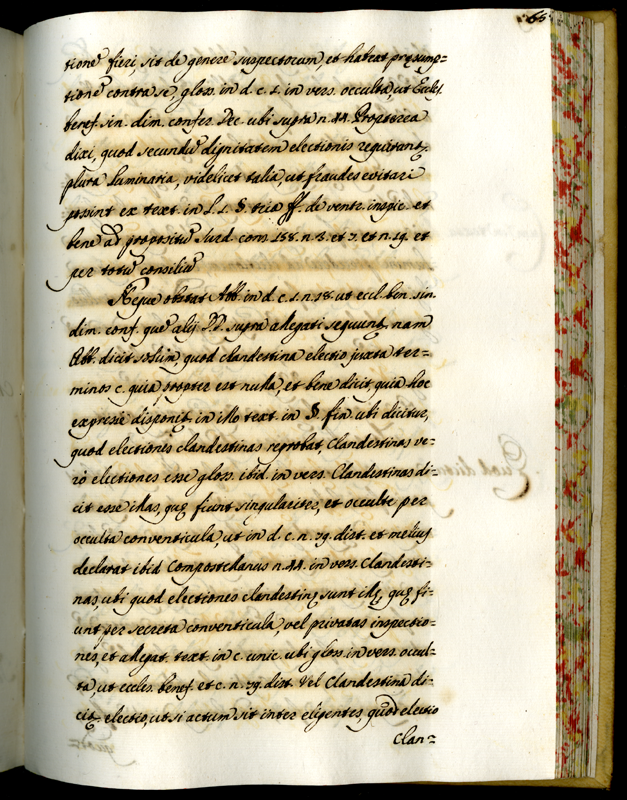 65
tionẽ fieri, sit de genere suspectorum, et habeat pręsump=
tionẽ contra se, glos. in d. c. 1. in vers. occulta, ut Eccles.
benef. sin. dim. confer. Dec. ubi supra n. 44. Propterea
dixi, quod secundũ dignitatem electionis requirant
plura Luminaria, videlicet talia, ut fraudes evitari
possint ex text. in L. 1. §. tria ff. de ventr. inspic. et
bene ad propositũ Surd. cons. 158. n. 3. et 7. et n. 19. et
per totũ consiliũ
Neque obstat Abb. in d. c. 1. n. 18. ut eccl. ben. sin.
dim. conf. quẽ alij DD. supra allegati sequunt. nam
Abb. dicit solum, quod clandestina electio juxta ter=
minos c. quia propter est nulla, et bene dicit, quia hoc
expresse disponit. in illo text. in §. fin. ubi dicitur,
quod electiones clandestinas reprobat, Clandestinas ve=
rò electiones esse glos. ibid. in vers. Clandestinas di=
cit esse illas, quę fiunt singulariter, et occulte per
occulta conventicula, ut in d. c. n. 79. dist. et melius
declarat ibid. Compostellanus n. 44. in vers. Clandesti=
nas, ubi quod electiones clandestinę sunt illę, quę fi=
unt per secreta conventicula, vel privatas inspectio=
nes, et allegat. text. in c. unic. ubi glos. in vers. occul=
ta, ut eccles. benef. et c. n. 79. dist. Vel Clandestina di=
cit. electio, ut si actum sit inter eligentes, quod electio
Clan=